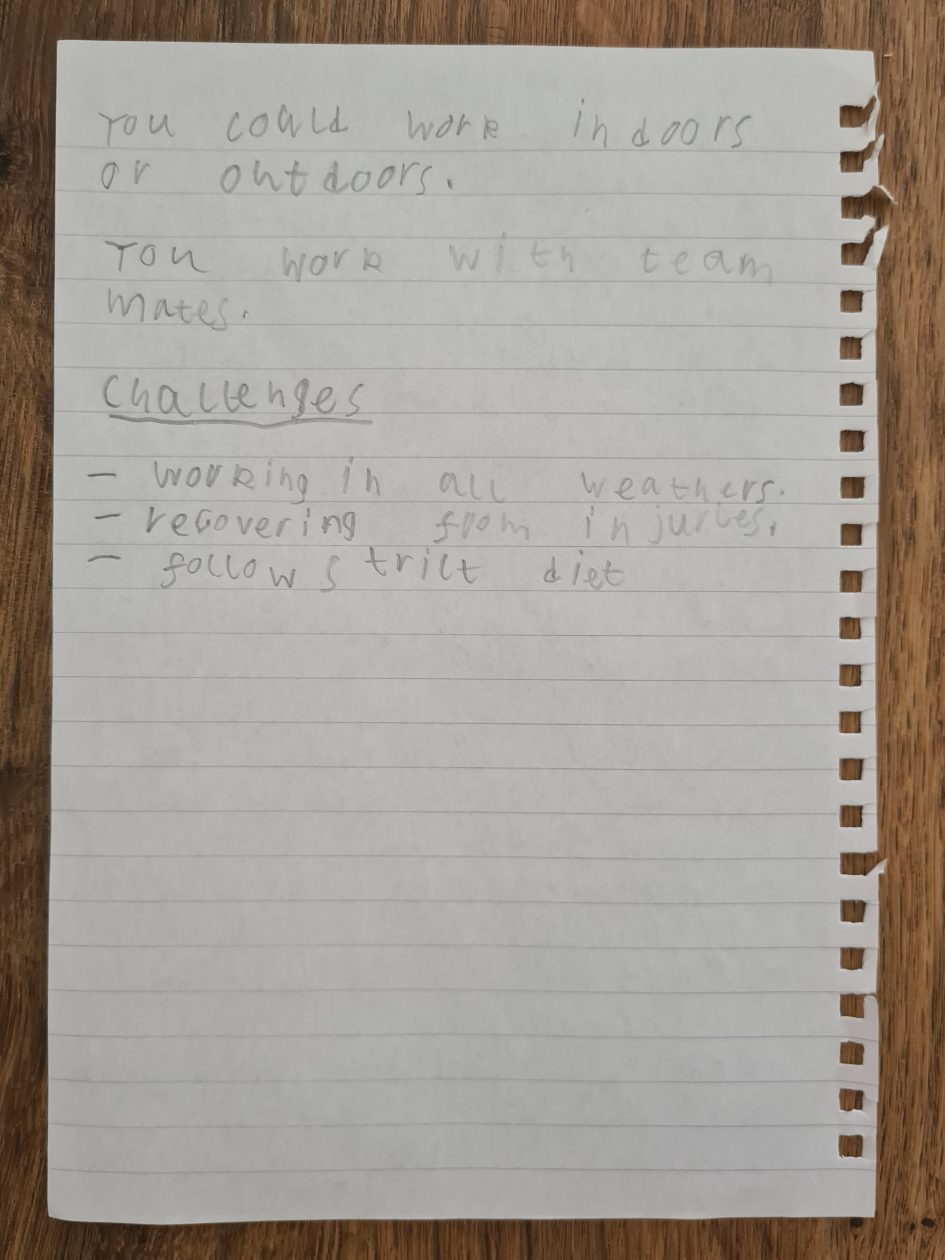 You could work indoors
or outdoors.
You work with team
mates.
Challenges
- working in all weathers.
- recovering from injuries.
- follow strict diet